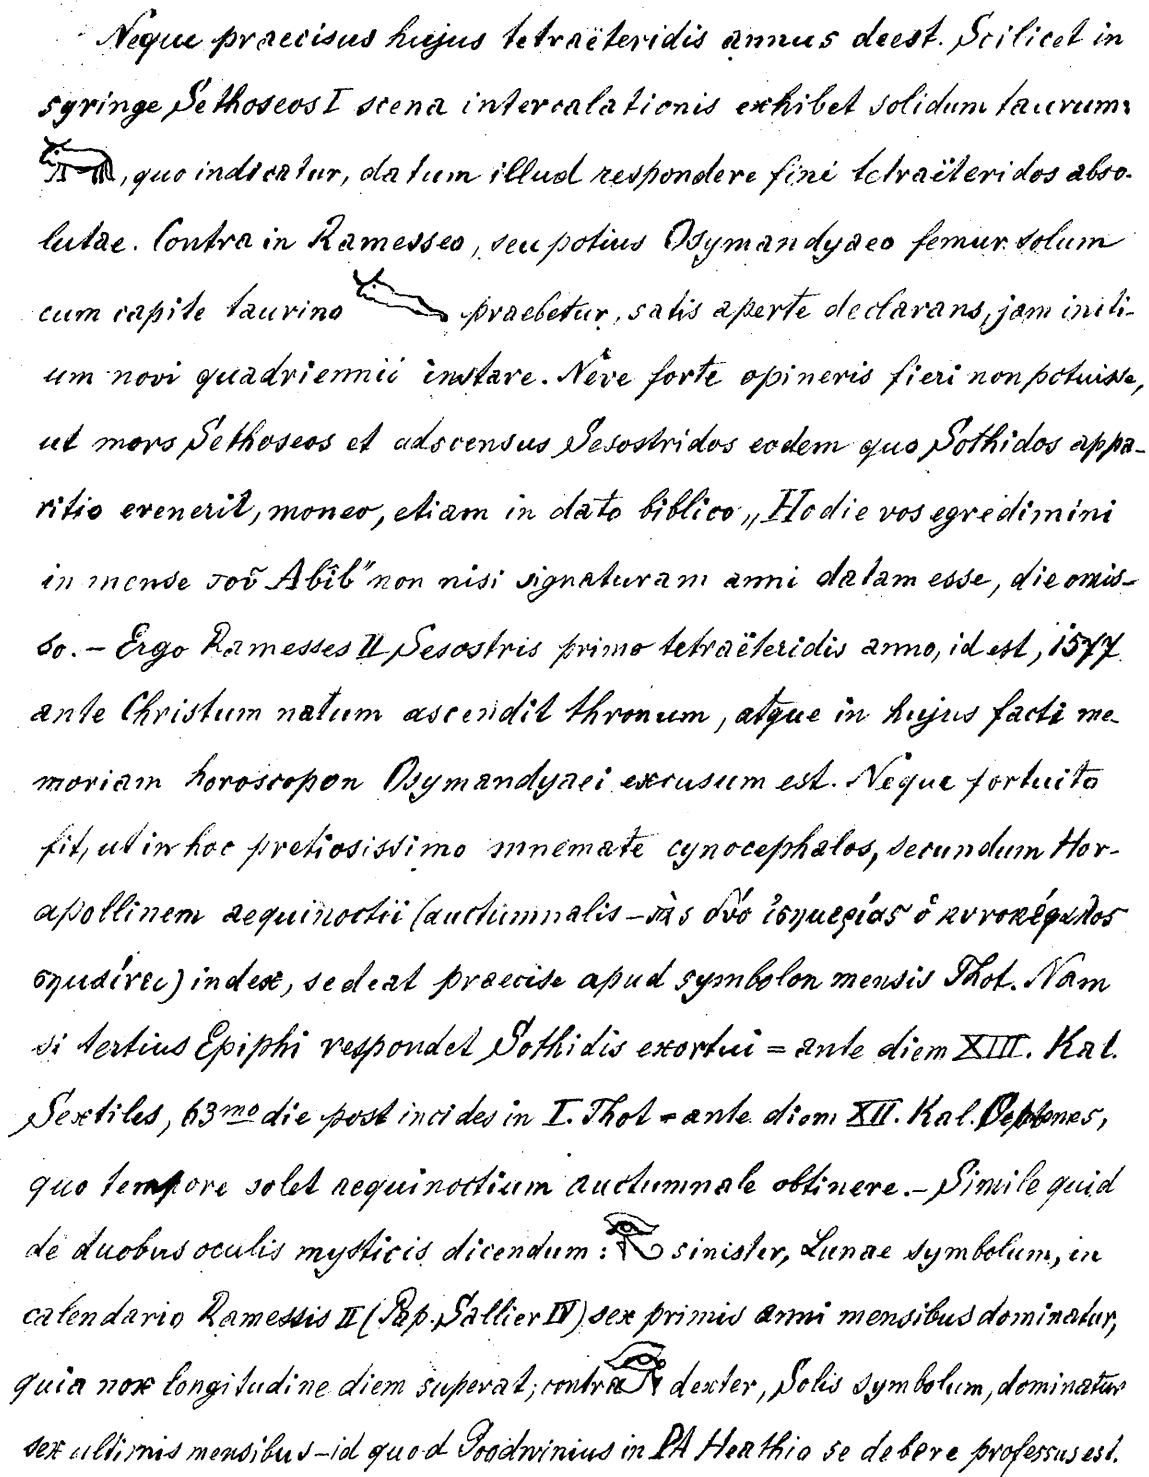 Neque praecisus hujus tetraëteridis annus deest. Scilicet in
syringe Sethoseos I scena intercalationis exhibet solidum taurum:
, quo indicatur, datum illud respondere fini tetraëteridos abso-
lutae. Contra in Ramesseo, seu potius Osymandyaeo femur solum
cum capite taurino praebetur, satis aperte declarans, jam initi-
um novi quadriennii instare. Neve forte opineris fieri non potuisse,
ut mors Sethoseos et adscensus Sesostridos eodem quo Sothidos appa-
ritio evenerit, moneo, etiam in dato biblico „Hodie vos egredimini
in mense τοῦ Abîb" non nisi signaturam anni datam esse, die omis-
so. – Ergo Ramesses II Sesostris primo tetraëteridis anno, id est, 1577
ante Christum natum ascendit thronum, atque in hujus facti me-
moriam horoscopon Osymandyaei excusum est. Neque fortuito
fit, ut in hoc pretiosissimo mnemate cynocephalos, secundum Hor-
apollinem aequinoctii (auctumnalis – τὰς δύο ἰσημερίας ὁ κυνοκέφαλος
σημαίνει) index, sedeat praecise apud symbolon mensis Thot. Nam
si tertius Epiphi respondet Sothidis exortui = ante diem XIII. Kal.
Sextiles, 63mo die post incides in I. Thot = ante diem XII. Kal.
quo tempore solet aequinoctium auctumnale obtinere. – Simile quid
de duobus oculis mysticis dicendum: sinister, Lunae symbolum, in
calendario Ramessis II (Pap. Sallier IV) sex primis anni mensibus dominatur,
quia nox longitudine diem superat; contra dexter, Solis symbolum, dominatur
sex ultimis mensibus – id quod Goodwinius in PA Heathio se debere professus est.